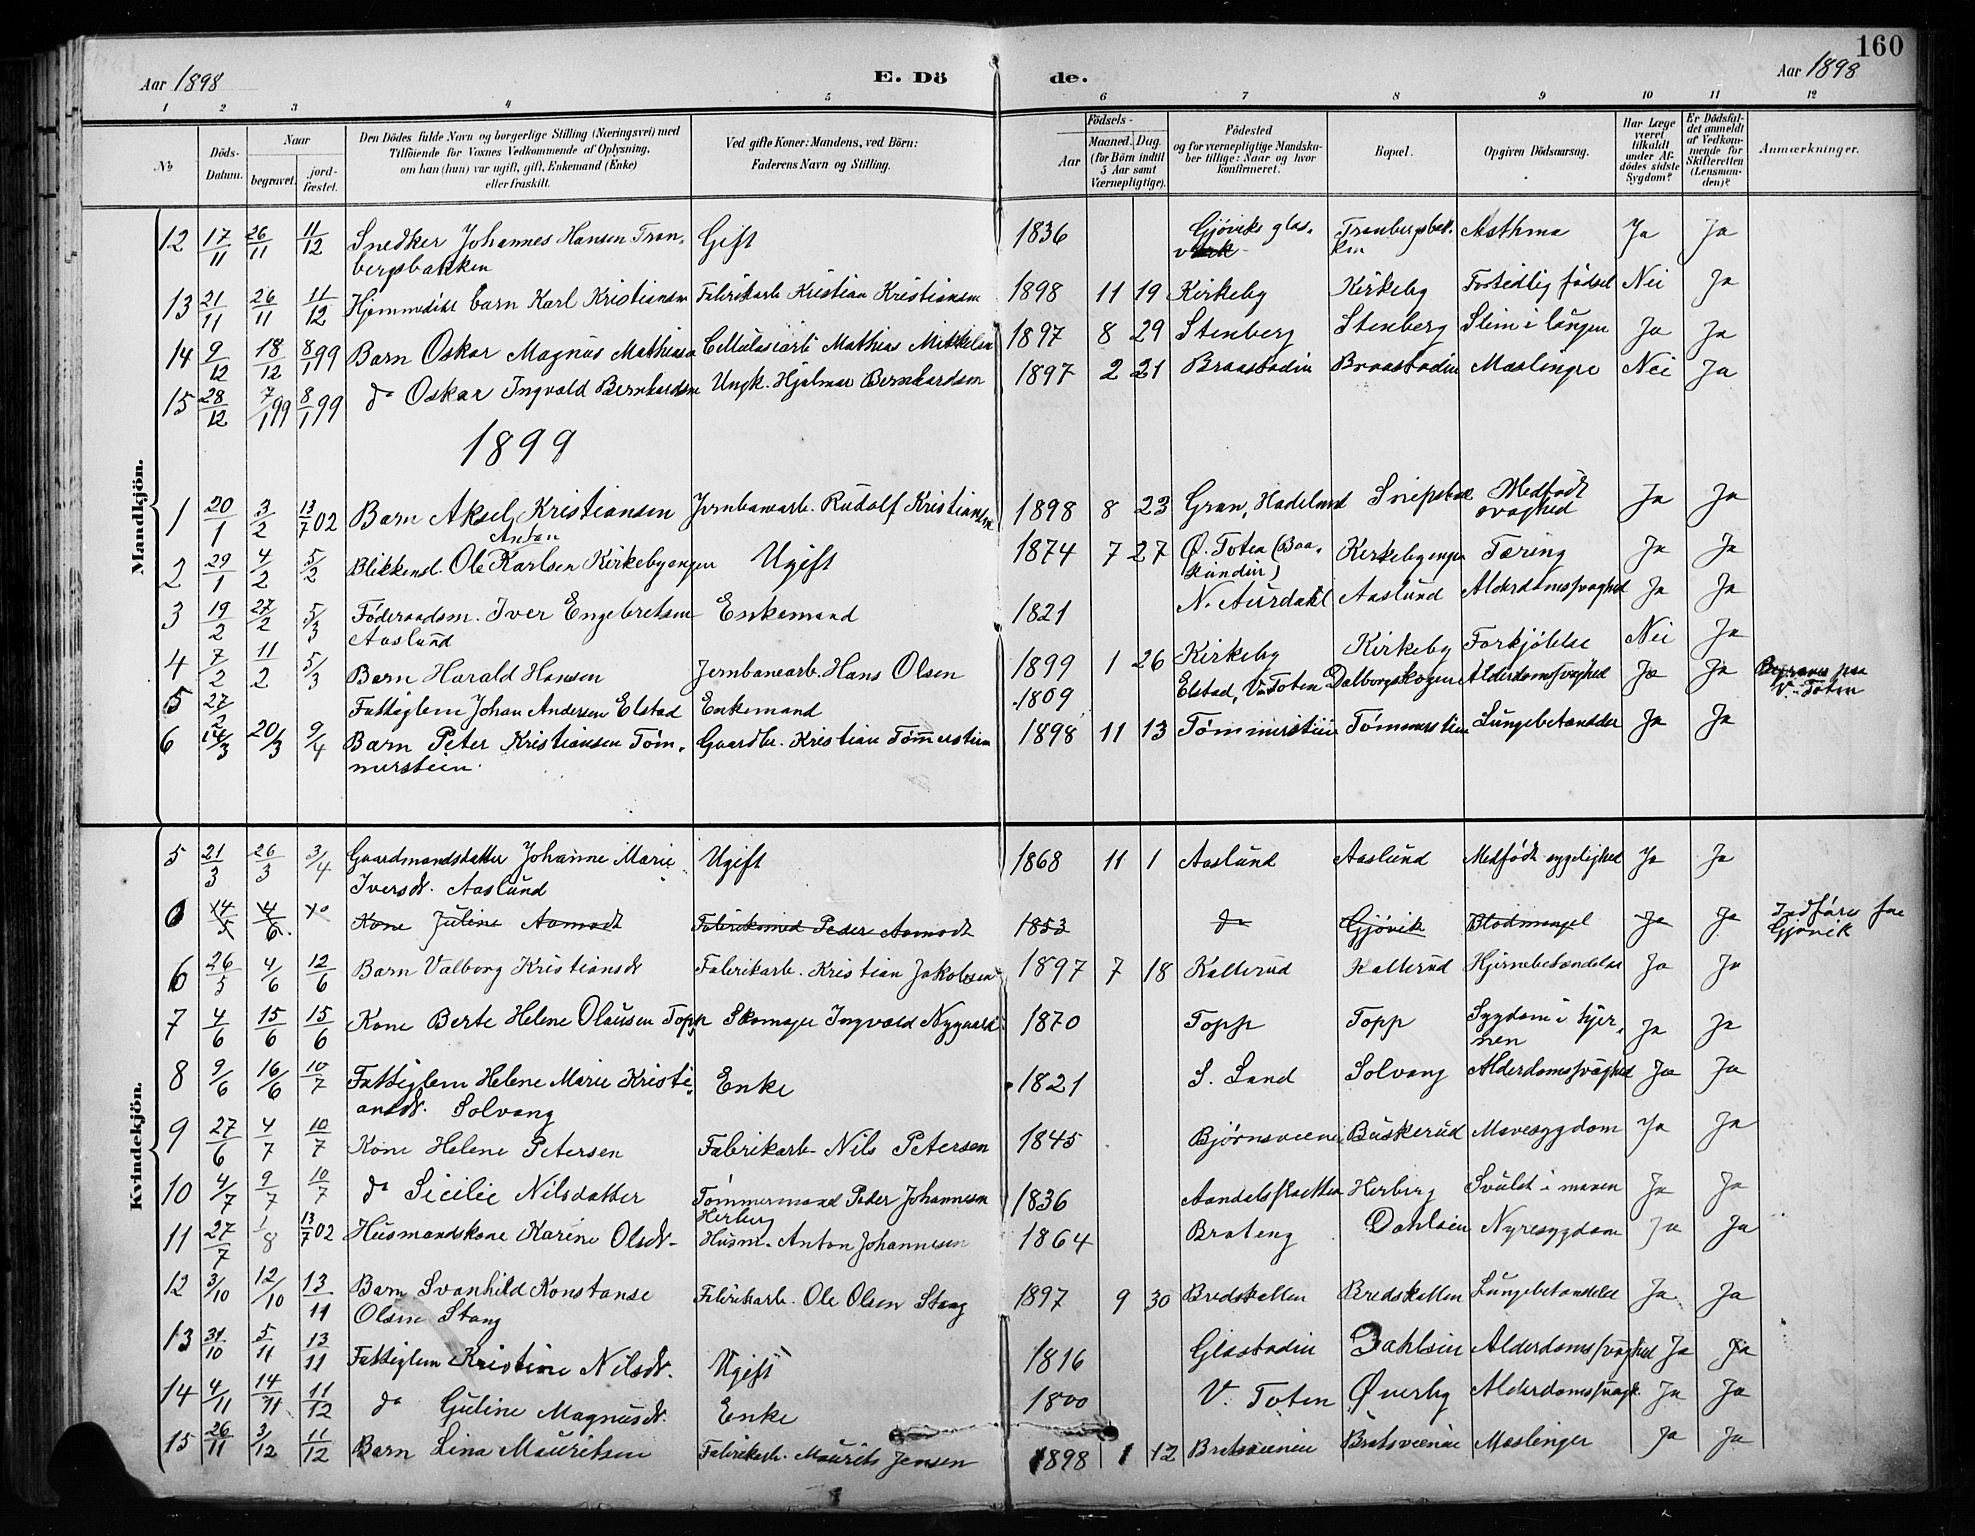 160
Aar 1898 E. Dö de. Aar 1898
1 2 3 4 5 6 7 8 9 10 11 12
№ Döds-Datum. Naar begravet. jord-fæstet. Den Dödes fulde Navn og borgerlige Stilling (Næringsvei) med Tilföiende for Voxnes Vedkommende af Oplysning, om han (hun) var ugift, gift, Enkemand (Enke) eller fraskilt. Ved gifte Koner: Mandens, ved Börn: Faderens Navn og Stilling. Födsels- Aar Maaned. Dag. (for Börn indtil 5 Aar samt Værnepligtige). Födested og for værnepligtige Mandskaber tillige: Naar og hvor konfirmeret. Bopæl. Opgiven Dödsaarsag. Har Læge været tilkaldt under Afdödes sidste Sygdom? Er Dödsfaldet anmeldt af Vedkommende for Skifteretten (Lensmanden)? Anmærkninger.
Mandkjön.
12 17/11 26/11 11/12 Snedker Johannes Hansen Tran- Gift 1836 Gjøviks glas- Tranbergsbak- Asthma Ja Ja
bergsbakken værk ken
13 21/11 26/11 11/12 Hjemmedøbt barn Karl Kristiansen Fabrikarb. Kristian Kristiansen 1898 11 19 Kirkeby Kirkeby Fortidlig fødsel Nei Ja
14 9/12 18/12 8/1 99 Barn Oskar Magnus Mathiasen Cellulosearb. Mathias Mikkelsen 1897 8 29 Stenberg Stenberg Slim i lungen Ja Ja
15 28/12 7/1 99 8/1 99 do Oskar Ingvald Bernhardsen Ungk. Hjalmar Bernhardsen 1897 2 21 Braastadin Braastadin Mæslinger Nei Ja
1899
1 20/1 3/2 13/7 02 Barn Aksel Kristiansen Jernbanearb. Rudolf Kristiansen 1898 8 23 Gran, Hadeland Medfødt svaghed Ja Ja
Anton
2 29/1 4/2 5/2 Blikkensl. Ole Karlsen Kirkebyengen Ugift 1874 7 27 Ø. Toten Kirkebyengen Tæring Ja Ja
3 19/2 27/2 5/3 Føderaadsm. Iver Engebretsen Enkemand 1821 N. Aurdahl Aaslund Alderdomssvaghed Ja Ja
Aaslund
4 7/2 11/2 5/3 Barn Harald Hansen Jernbanearb. Hans Olsen 1899 1 26 Kirkeby Kirkeby Forkjølelse Nei Ja
5 27/2 Fattiglem Johan Andersen Elstad Enkemand 1809 Elstad, V. Toten Dalborgskogen Alderdomssvaghed Ja Ja Begraves paa V. Toten
6 14/3 20/3 9/4 Barn Peter Kristiansen Tøm- Gaardbr. Kristian Tømmerstien 1898 11 13 Tømmerstien Tømmerstien Lungebetændelse Ja Ja
merstien.
Kvindekjön.
5 21/3 26/3 3/4 Gaardmandsdatter Johanne Marie Ugift 1868 11 1 Aaslund Aaslund Medfødt sygelighed Ja Ja
Iversdt. Aaslund
6 14/5 4/6 Kone Juline Aamodt Fabriksmed Peder Aamodt 1853 do Gjøvik Blodmangel Ja Ja Indføres for Gjøvik
6 26/5 4/6 12/6 Barn Valborg Kristiansdt Fabrikarb. Kristian Jakobsen 1897 7 18 Kallerud Kallerud Hjernebetændelse Ja Ja
7 4/6 15/6 15/6 Kone Berte Helene Olausen Topp Skomager Ingvald Nygaard 1870 Topp Topp Sygdom i hjer- Ja Ja
nen
8 9/6 16/6 10/7 Fattiglem Helene Marie Kristi- Enke 1821 S. Land Solvang Alderdomssvaghed Ja Ja
ansdt. Solvang
9 27/6 4/7 10/7 Kone Helene Petersen Fabrikarb. Nils Petersen 1845 Bjørnsveen Buskerud Mavesygdom Ja Ja
10 4/7 9/7 10/7 do Sicilie Nilsdatter Tømmermand Peder Johannesen 1836 Herberg Svulst i maven Ja Ja
Herberg
11 27/7 1/8 13/7 02 Husmandskone Karine Olsdt. Husm. Anton Johannesen 1864 Brateng Dahlsien Nyresygdom Ja Ja
12 3/10 12/10 13/11 Barn Svanhild Konstanse Fabrikarb. Ole Olsen Stang 1897 9 30 Bredskallen Bredskallen Lungebetændelse Ja Ja
Olsen Stang
13 31/10 5/11 13/11 Fattiglem Kristine Nilsdt. Ugift 1816 Glæstadin Dahlsien Alderdomssvaghed Ja Ja
14 4/11 14/11 11/12 do Guline Magnusdt. Enke 1800 V. Toten Øverby Alderdomssvagh. Ja Ja
15 26/11 3/12 11/12 Barn Lina Mauritsen Fabrikarb. Maurits Jensen 1898 1 12 Bratsveenie Bratsveenie Mæslinger Ja Ja